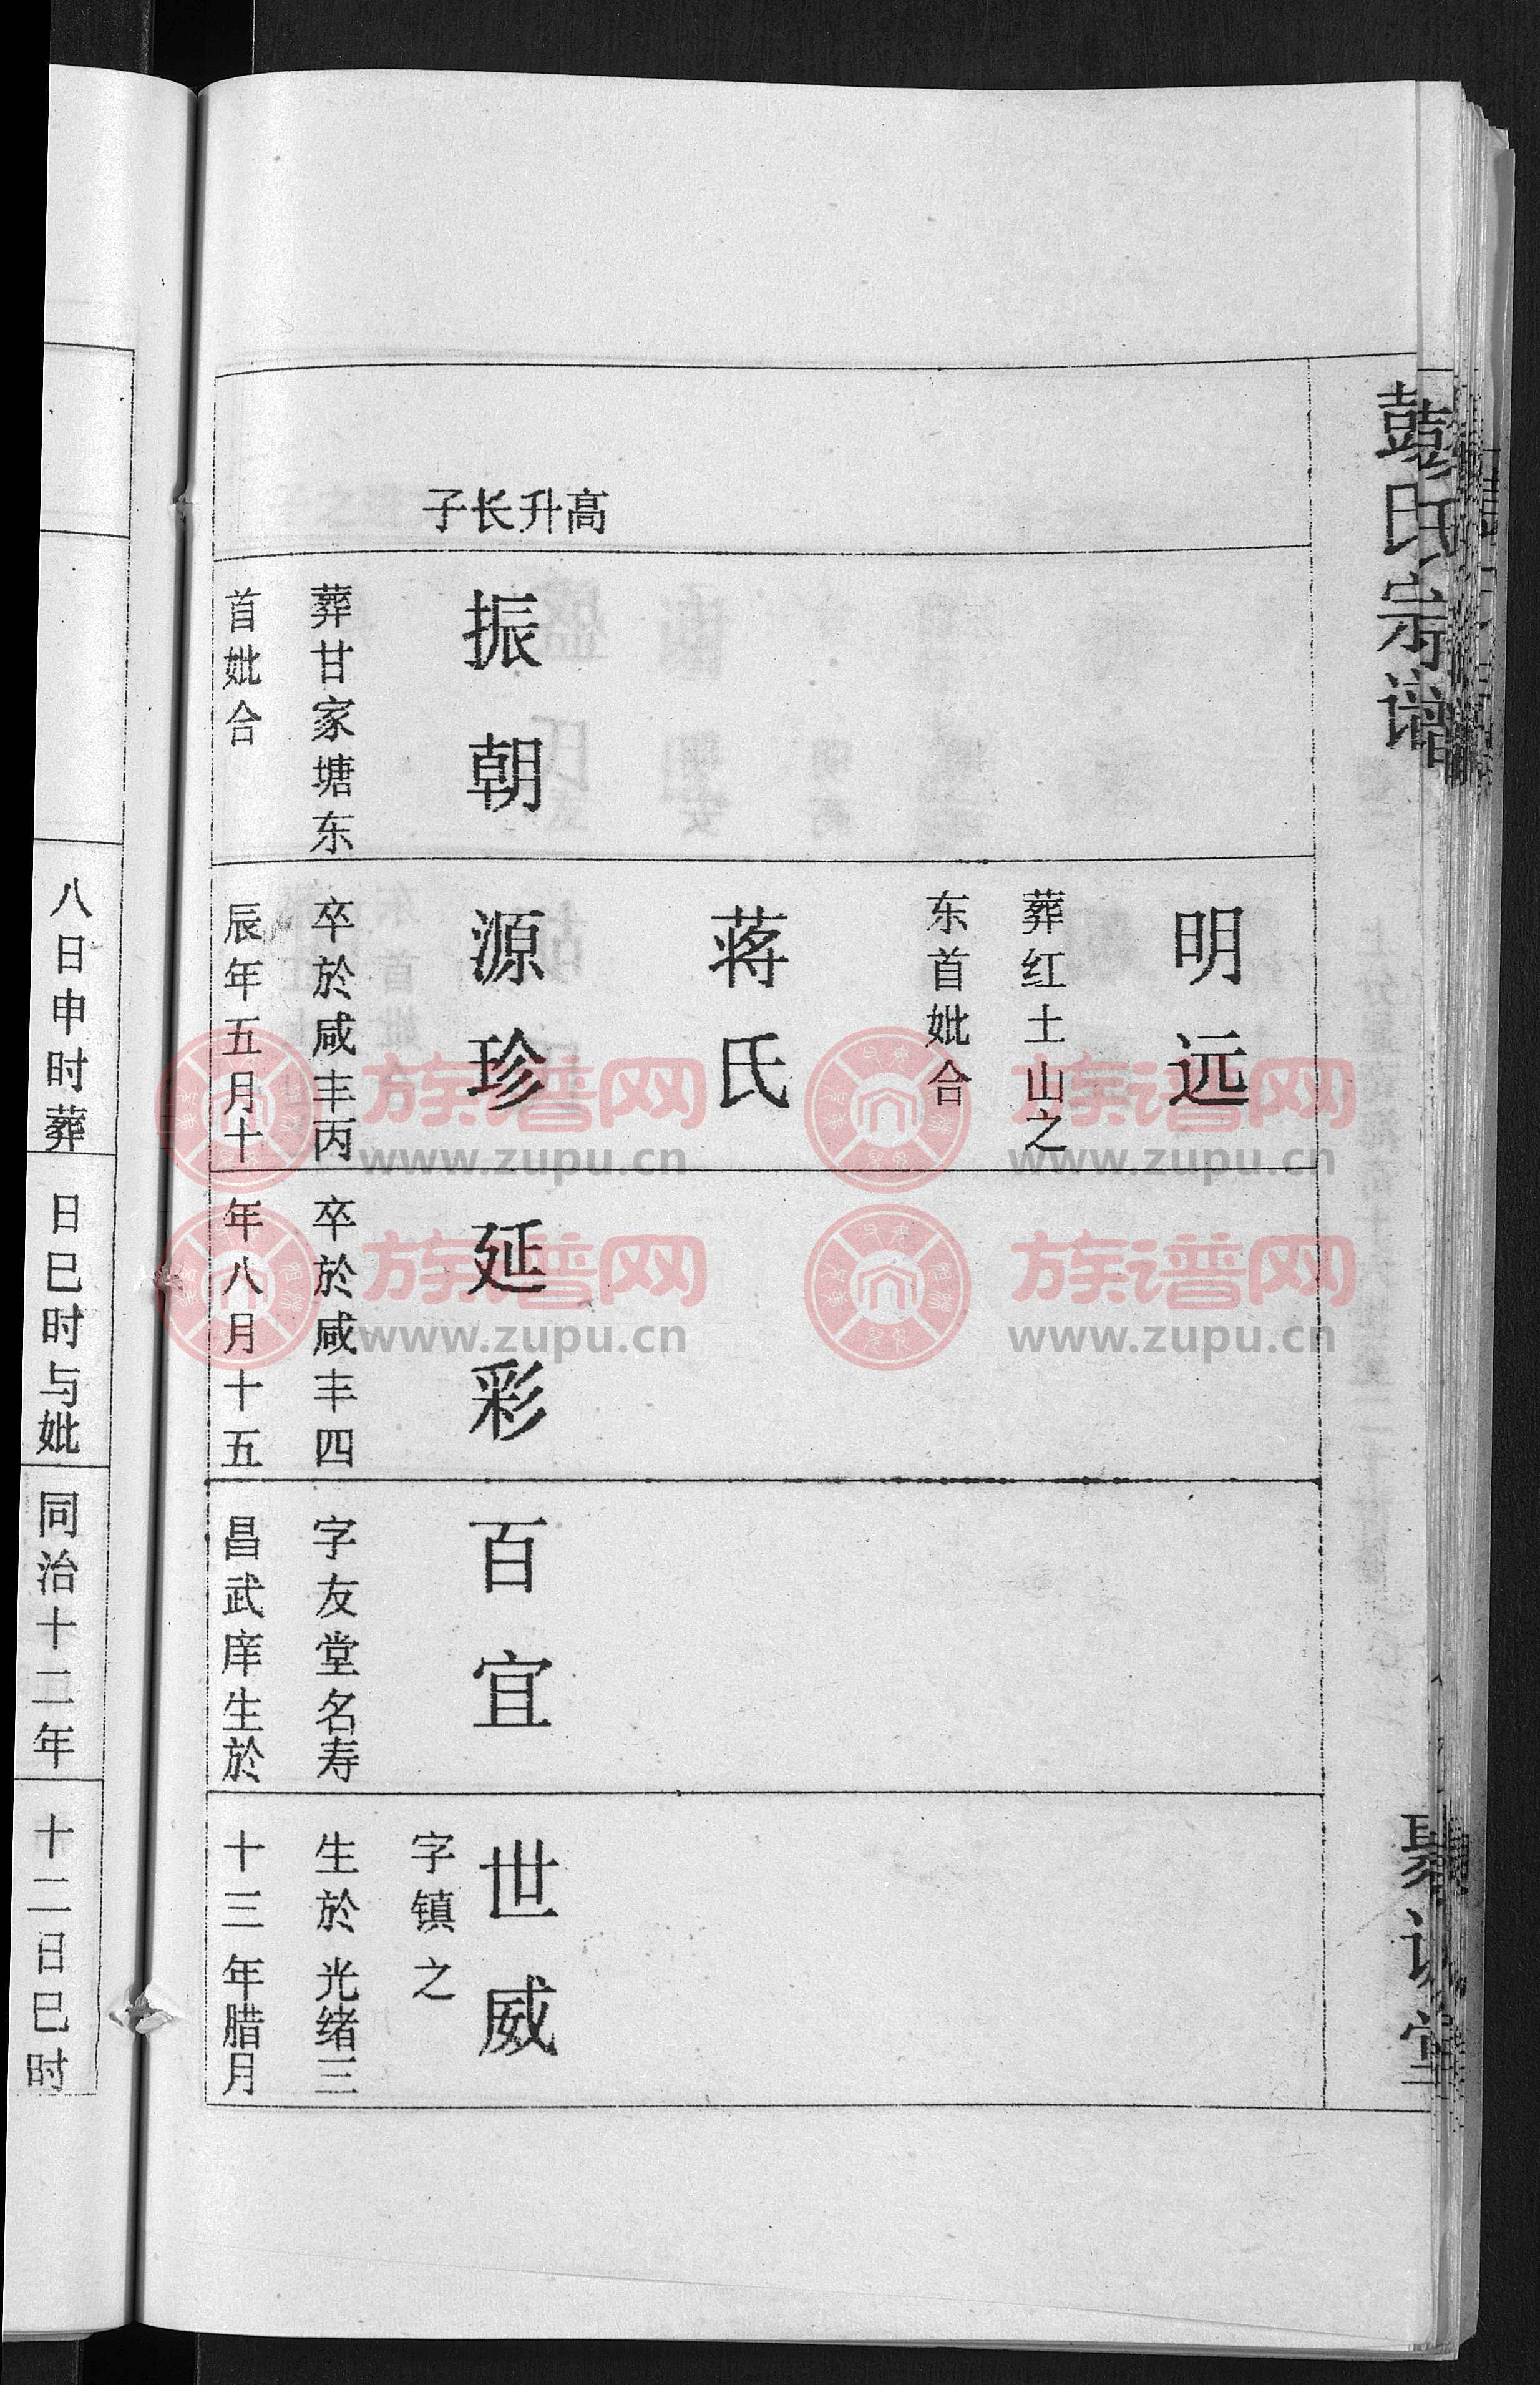 彭氏宗谱
聚
堂
高升长子
振朝
葬甘家塘东
首妣合
明远
葬红土山之
东首妣合
蒋氏
源珍
卒於咸丰丙
辰年五月十
延彩
卒於咸丰四
年八月十五
百宜
字友堂名寿
昌武庠生於
世威
字镇之
生於光绪三
十三年腊月
八日申时葬
日巳时与妣
同治十二年
十二日巳时
族谱网
www.zupu.cn
族谱网
www.zupu.cn
族谱网
www.zupu.cn
族谱网
www.zupu.cn